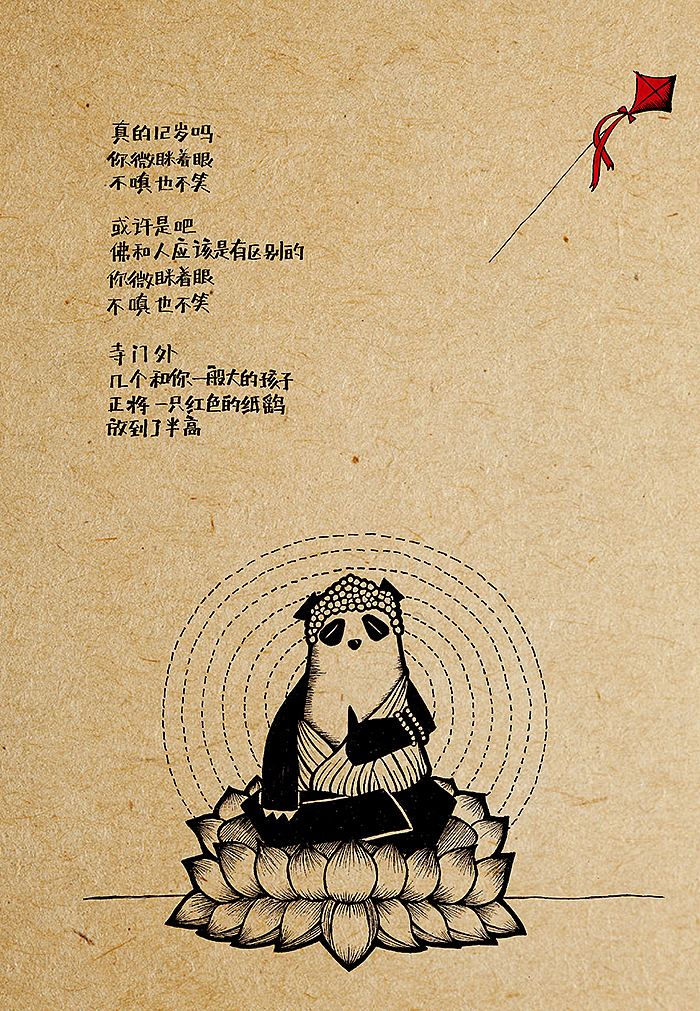 真的12岁吗
你微眯着眼
不嗔也不笑
或许是吧
佛和人应该是有区别的
你微眯着眼
不嗔也不笑
寺门外
几个和你一般大的孩子
正将一只红色的纸鹞
放到了半高